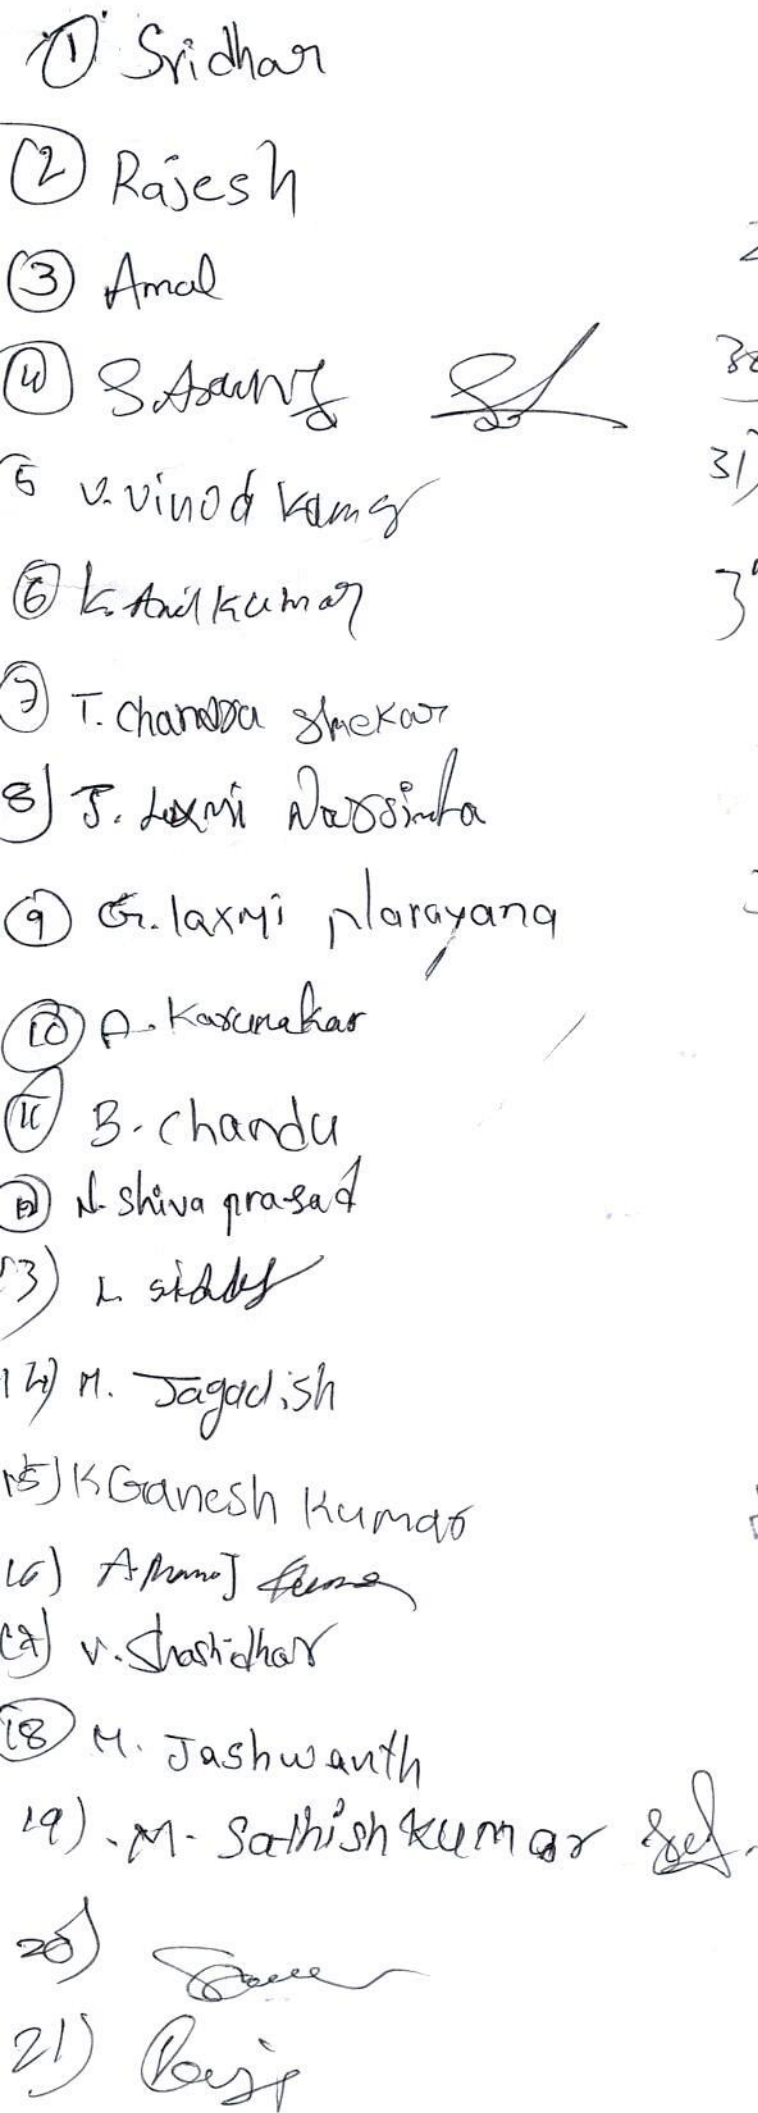 ① Sridhar
② Rajesh
③ Amal
④ S.
5 V. Vinod Kumar
⑥ K. Anil Kumar
⑦ T. Chandra Shekar
8) J. Laxmi Narsimha
⑨ G. laxmi Narayana
⑩ A. Karunakar
⑪ B. chandu
⑫ N. Shiva prasad
13) L.
14) M. Jagadish
15) K Ganesh Kumar
16) A. Manoj Kumar
17) V. Shashidhar
⑱ M. Jashwanth
19) M. Sathish Kumar
20)
21)
31)